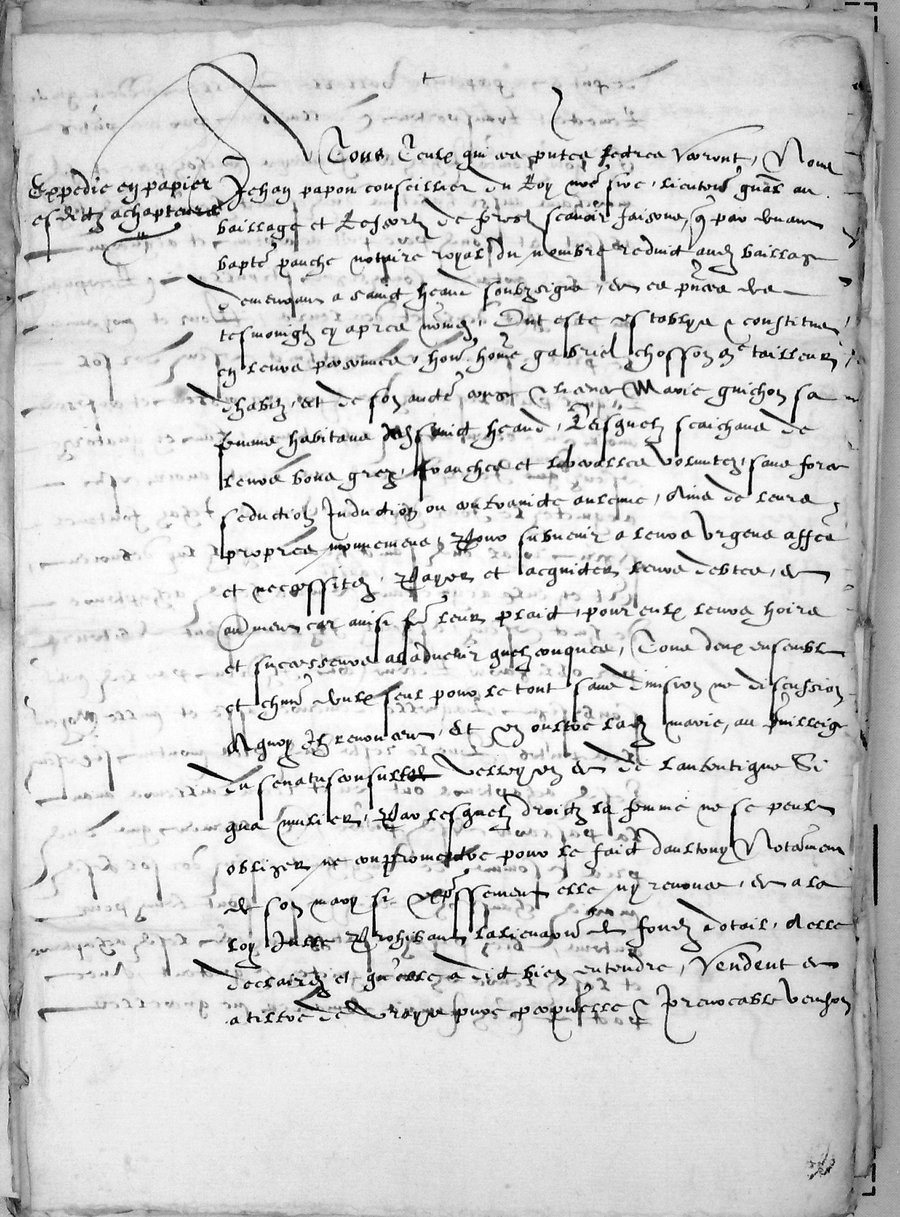 Expedie en papier
esditz achapteurs
A Tous ceulx qui ces pntes lectres verront, Nous
Jehan papon conseillier du Roy nre sire, lieuten gnal au
bailliage et Ressort de forestz scavoir faisons, q par devant
bapte panche notaire royal du nombre reduict aud bailliage
demeurant a sainct heand soubzsigne, et es pnces des
tesmoingz cy apres nomez, Ont este establys & constitues
en leurs personnes, hon home gabriel chosson me tailleur
dhabitz, et de son aucte marie guichon sa
femme habitans sainct heand, Lesquelz scaichans de
leurs bons grez, franches et liberalles voluntez, sans force
seduction Induction ou contraincte aulcune, Ains de leurs
propres mouvemens, Pour subvenir a leurs urgens affes
et necessitez, Payer et acquicter leurs debtes, et
aultremen car ainsi leur plaict, pour eulx leurs hoirs
et successeurs a ladvenir quelzconques, Tous deux ensemble
et chun deulx seul pour le tout sans division ne discussion
A quoy Ilz renoncent, Et en oultre lad marie, au privilleige
du senatusconsulte Velleyen et de lautentique Si
qua mulier, Par lesquelz droictz la femme ne se peult
obliger ne compromectre pour le faict daultruy Notamen
de son mary si expssement elle ny renonce, et a la
loy Julle Prohibant lalienaon du fondz dotail, A elle
declairez et qu'elle a dict bien entendre, Vendent et
a tiltre de vraye pure perpetuelle & Irrevocable vendon